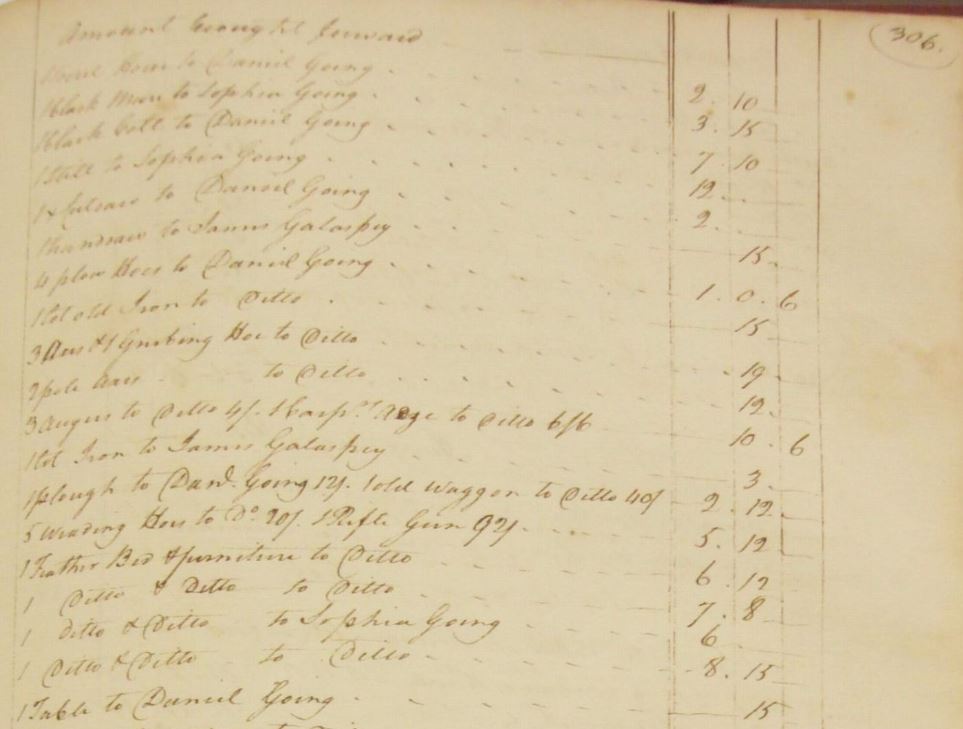 306.
Amount brought forward
Horse to Daniel Going 2. 10
1 black Mare to Sophia Going 3. 15
1 black Colt to Daniel Going 7. 10
1 Still to Sophia Going 12
1 x Cutsaw to Daniel Going 2.
1 handsaw to James Galaspey 15
4 plow Hoes to Daniel Going 1. 0. 6
1 lot old Iron to Ditto 15
3 Axes & 1 Grubing Hoe to Ditto 19
2 pole Axes to Ditto 12
3 Augers to Ditto 4/. 1 Adze to Ditto 6/6 10. 6
1 lot Iron to James Galaspey 3.
1 plough to Danl. Going 12/. 1 old Waggon to Ditto 40/ 2. 12
5 Weading Hoes to Do. 20/. 1 Rifle Gun 92/. 5. 12
1 Feather Bed & furniture to Ditto 6. 12
1 Ditto & Ditto to Ditto 7. 8
1 ditto & Ditto to Sophia Going 6
1 Ditto & Ditto to Ditto 8. 15
1 Table to Daniel Going 15